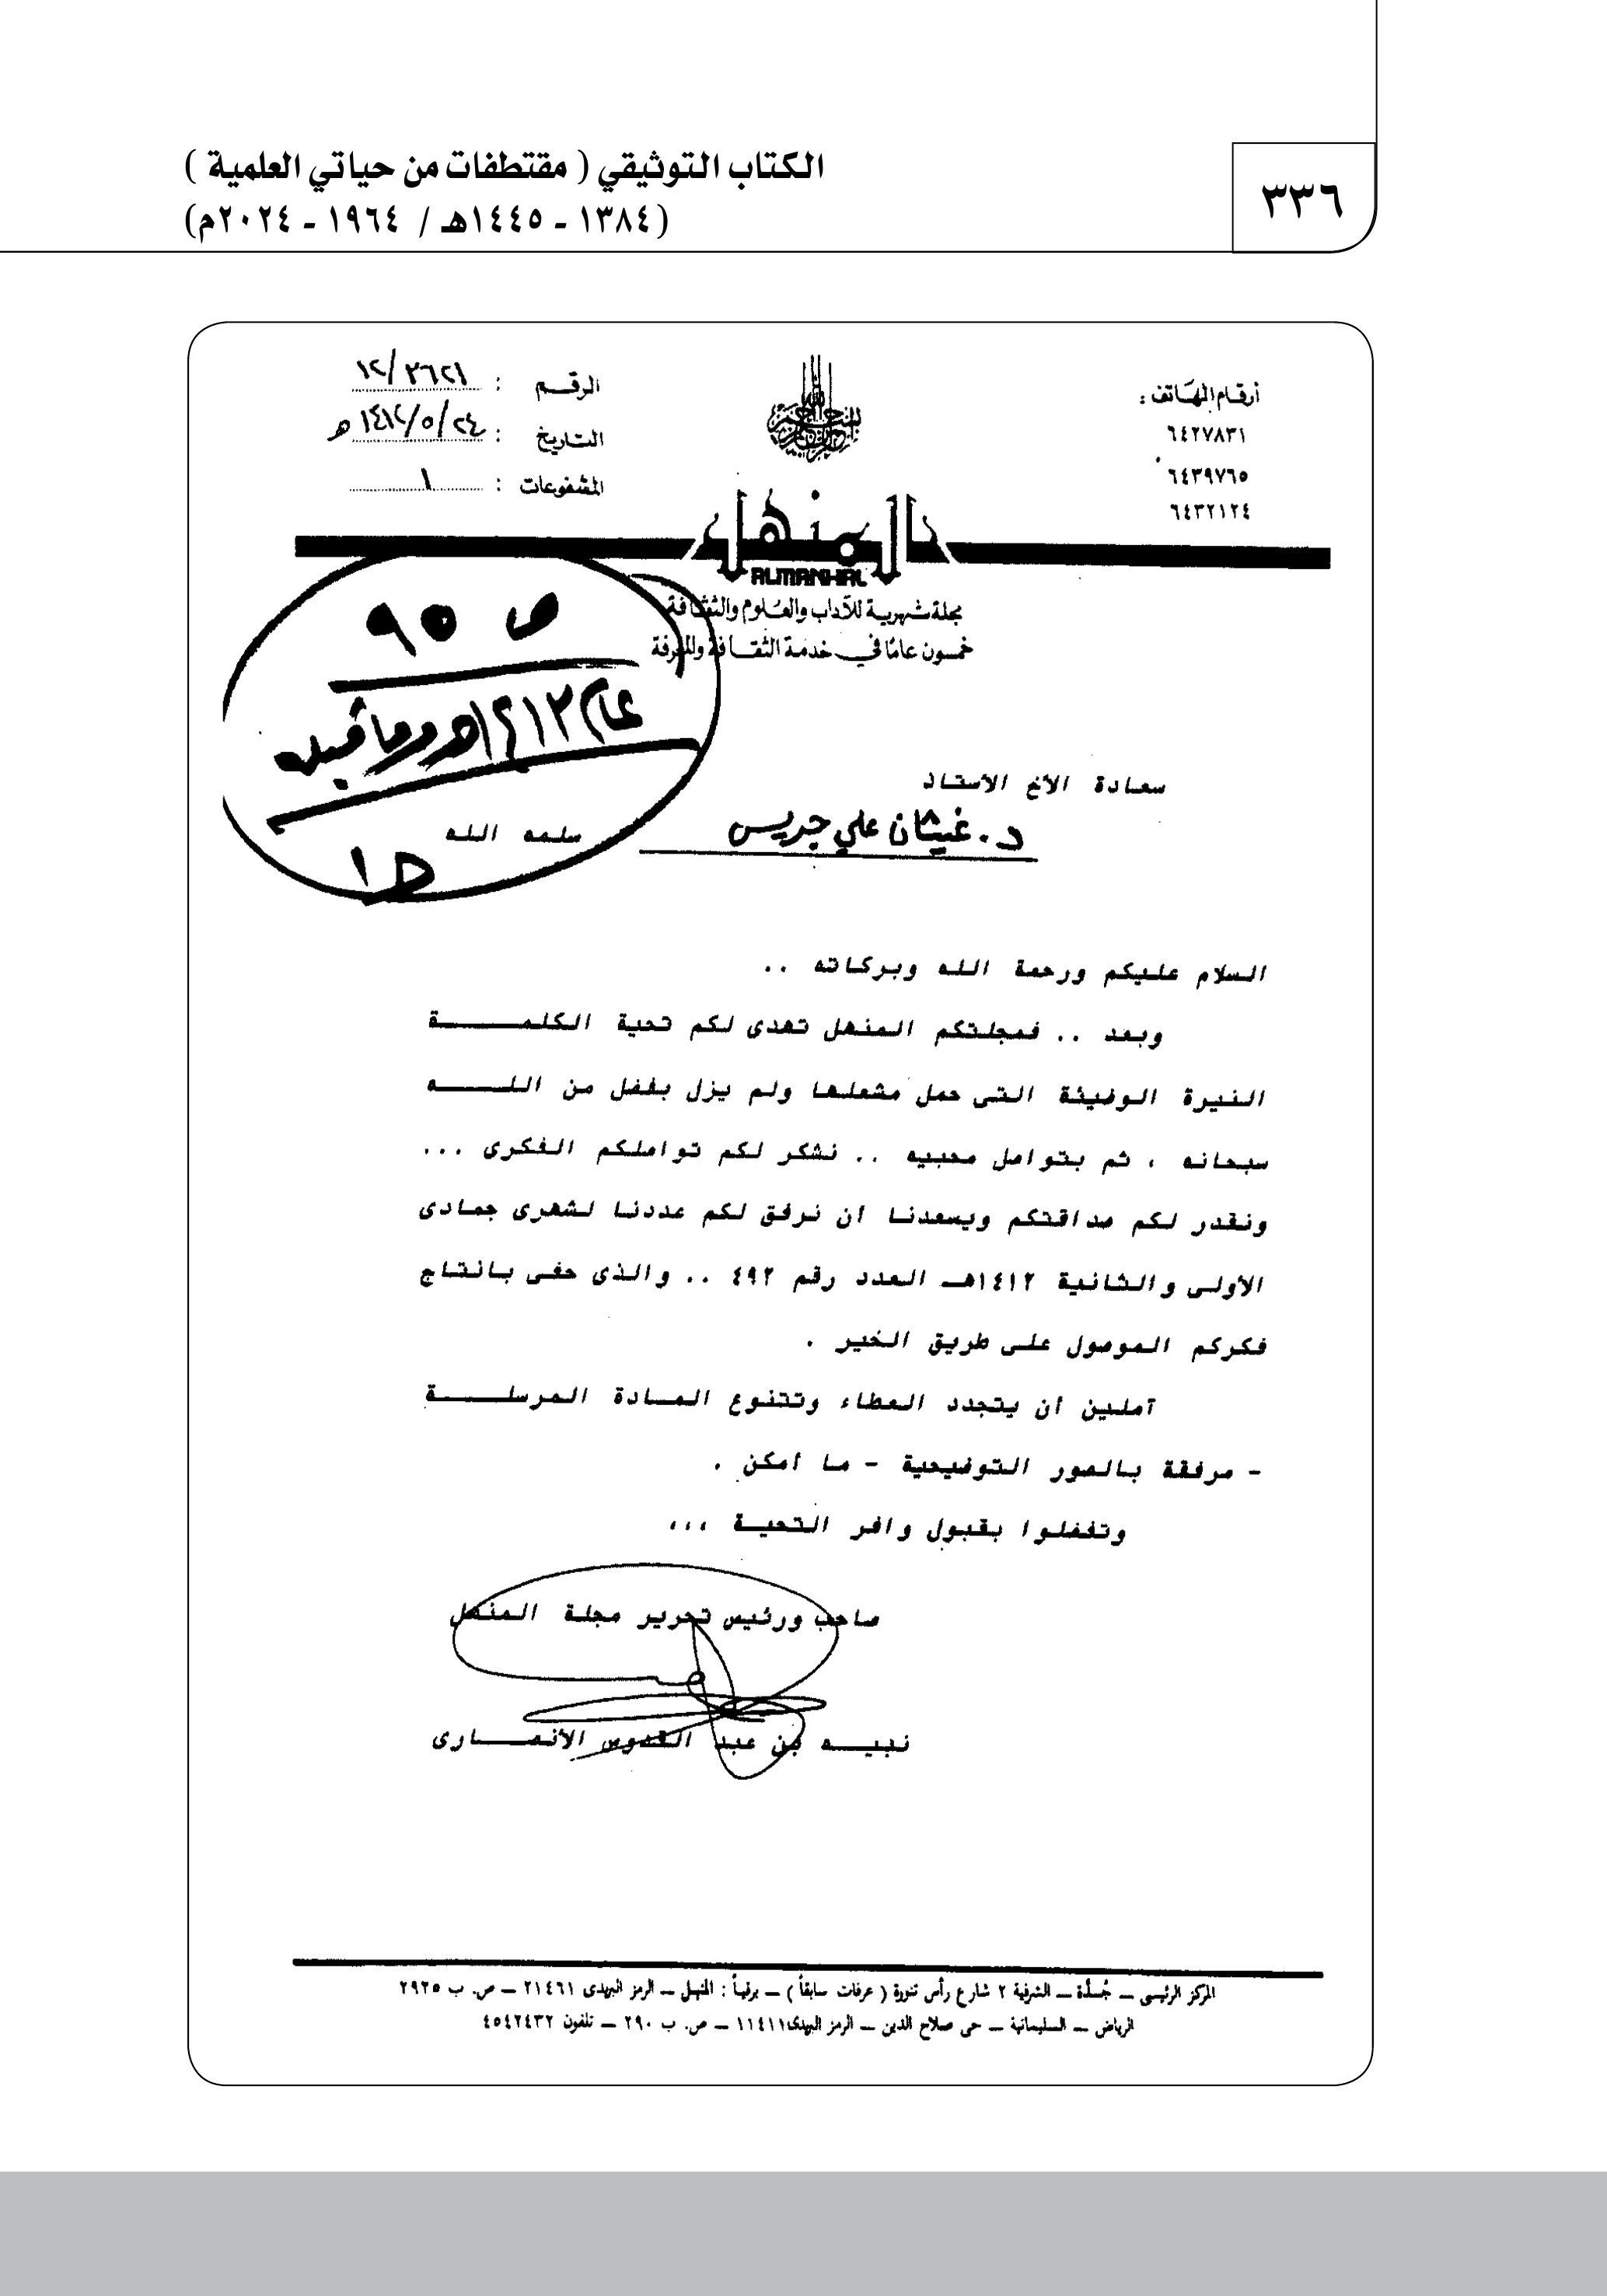 الكتاب التوثيقي ( مقتطفات من حياتي العلمية )
(١٣٨٤ ـ ١٤٤٥هـ / ١٩٦٤ ـ ٢٠٢٤م)
٣٣٦
أرقام الهاتف :
٦٤٢٧٨٣١
٦٤٣٩٧٦٥
٦٤٣٢١٢٤
الرقم : ١٢/٣٦٢١
التاريخ : ١٤١٢/٥/٢٤ هـ
المشفوعات : ١
المنهل
ALMANHAL
مجلة شهرية للآداب والعلوم والثقافة
خمسون عامًا في خدمة الثقافة والمعرفة
ص ٩٥
عام ١٤١٢هـ وما قبله
سعادة الأخ الأستاذ
د. غيثان علي جريس سلمه الله
السلام عليكم ورحمة الله وبركاته ..
وبعد .. فمجلتكم المنهل تهدى لكم تحية الكلمـــــة
النيرة الوضيئة التى حمل مشعلها ولم يزل بفضل من اللــــه
سبحانه ، ثم بتواصل محبيه .. نشكر لكم تواصلكم الفكرى ...
ونقدر لكم صداقتكم ويسعدنا ان نرفق لكم عددنا لشهرى جمادى
الأولى والثانية ١٤١٢هـ العدد رقم ٤٩٢ .. والذى حفى بانتاج
فكركم الموصول على طريق الخير .
آملين أن يتجدد العطاء وتتنوع المادة المرسلــــة
- مرفقة بالصور التوضيحية - ما أمكن .
وتفضلوا بقبول وافر التحيـة ،،،
صاحب ورئيس تحرير مجلة المنهل
نبيـــه بن عبد القدوس الأنصــارى
المركز الرئيسى ــ جُــدّة ــ الشرفية ٢ شارع رأس تنورة ( عرفات سابقاً ) ــ برقيـاً : المنهـل ــ الرمز البريدى ٢١٤٦١ ــ ص. ب ٢٩٢٥
الرياض ــ السليمانية ــ حى صلاح الدين ــ الرمز البريدى١١٤١١ ــ ص. ب ٢٩٠ ــ تلفون ٤٥٤٢٤٣٢